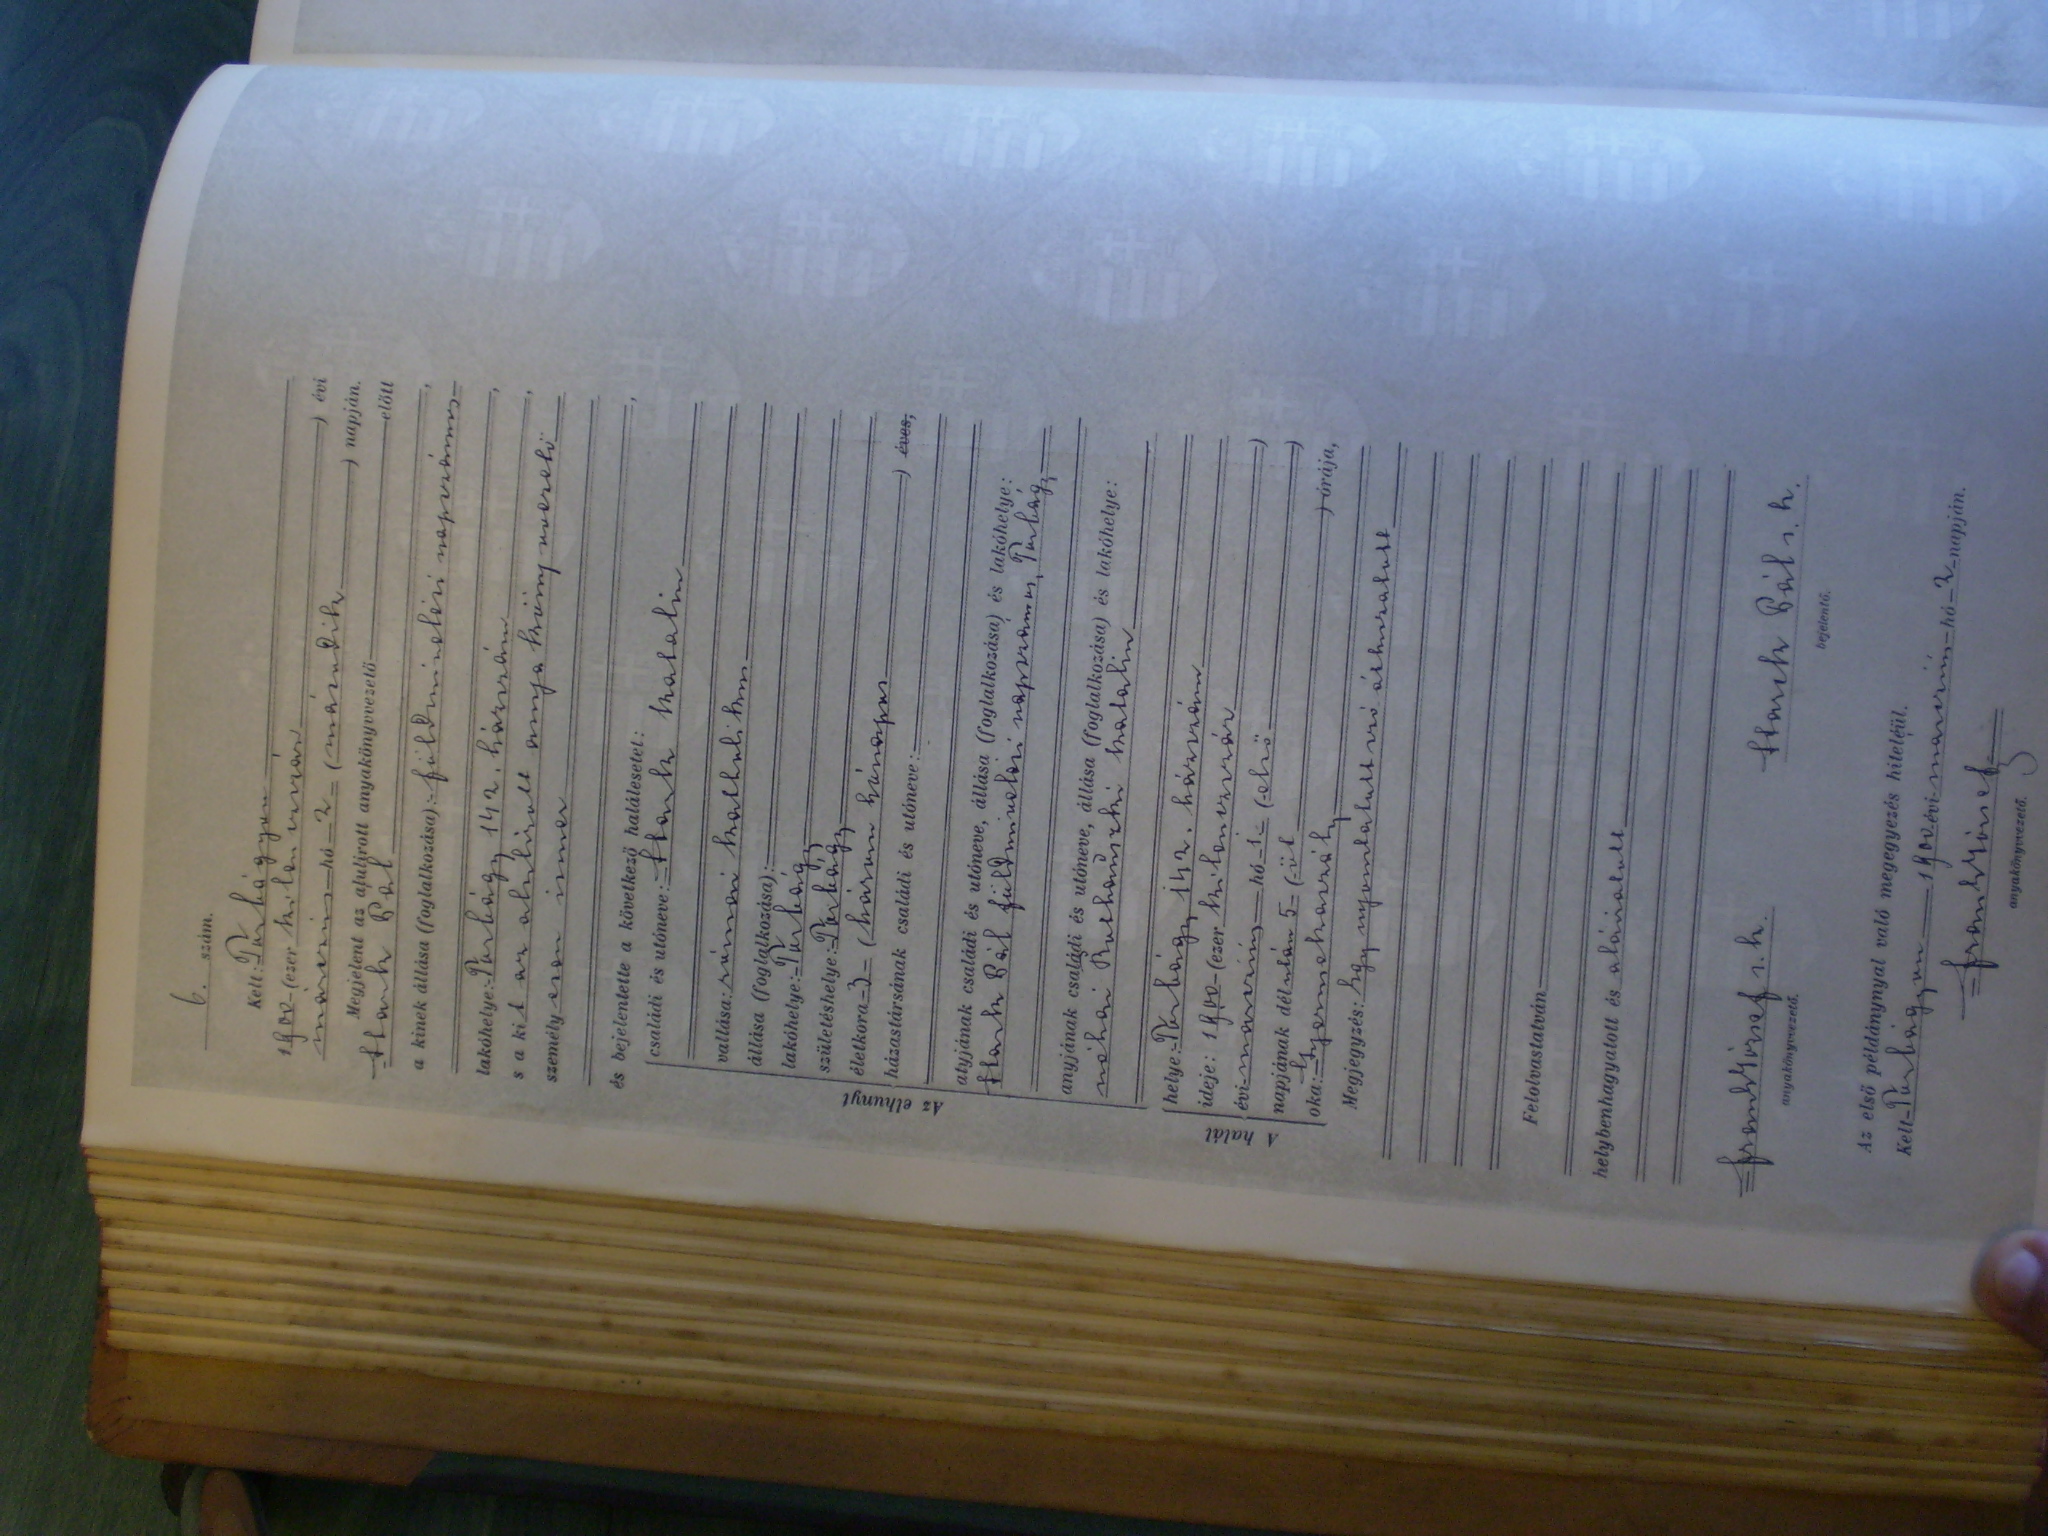 6. szám.
Kelt: Turbágyon
1900 (ezer kilencszáz) évi
március hó 2 (második) napján.
Megjelent az alulírott anyakönyvvezető előtt
Hank Pál,
a kinek állása (foglalkozása): földmivelési napszámos
lakóhelye: Turbágy 142. házszám,
s a kit az alulírott anyakönyvvezető
személyesen ismer
és bejelentette a következő halálesetet:
családi és utóneve: Hank Katalin
vallása: római katholikus
állása (foglalkozása):
lakóhelye: Turbágy
születéshelye: Turbágy
életkora 3 (három hónapos) éves,
házastársának családi és utóneve:
Az elhunyt
atyjának családi és utóneve, állása (foglalkozása) és lakóhelye:
Hank Pál földmivelési napszámos, Turbágy
anyjának családi és utóneve, állása (foglalkozása) és lakóhelye:
néhai Katalin
helye: Turbágy 142. házszám
ideje: 1900 (ezer kilencszáz)
évi március hó 1 (első)
napjának délután 5 (öt) órája,
oka: Gyermekaszály
A halál
Megjegyzés: Egy nyomtatott szó áthuzatott
Felolvastatván
helybenhagyatott és aláíratott
Frank József s. k.
anyakönyvvezető.
Hank Pál s. k.
bejelentő.
Az első példánynyal való megegyezés hiteléül.
Kelt Turbágyon 1900. évi március hó 2 napján.
Frank József
anyakönyvvezető.